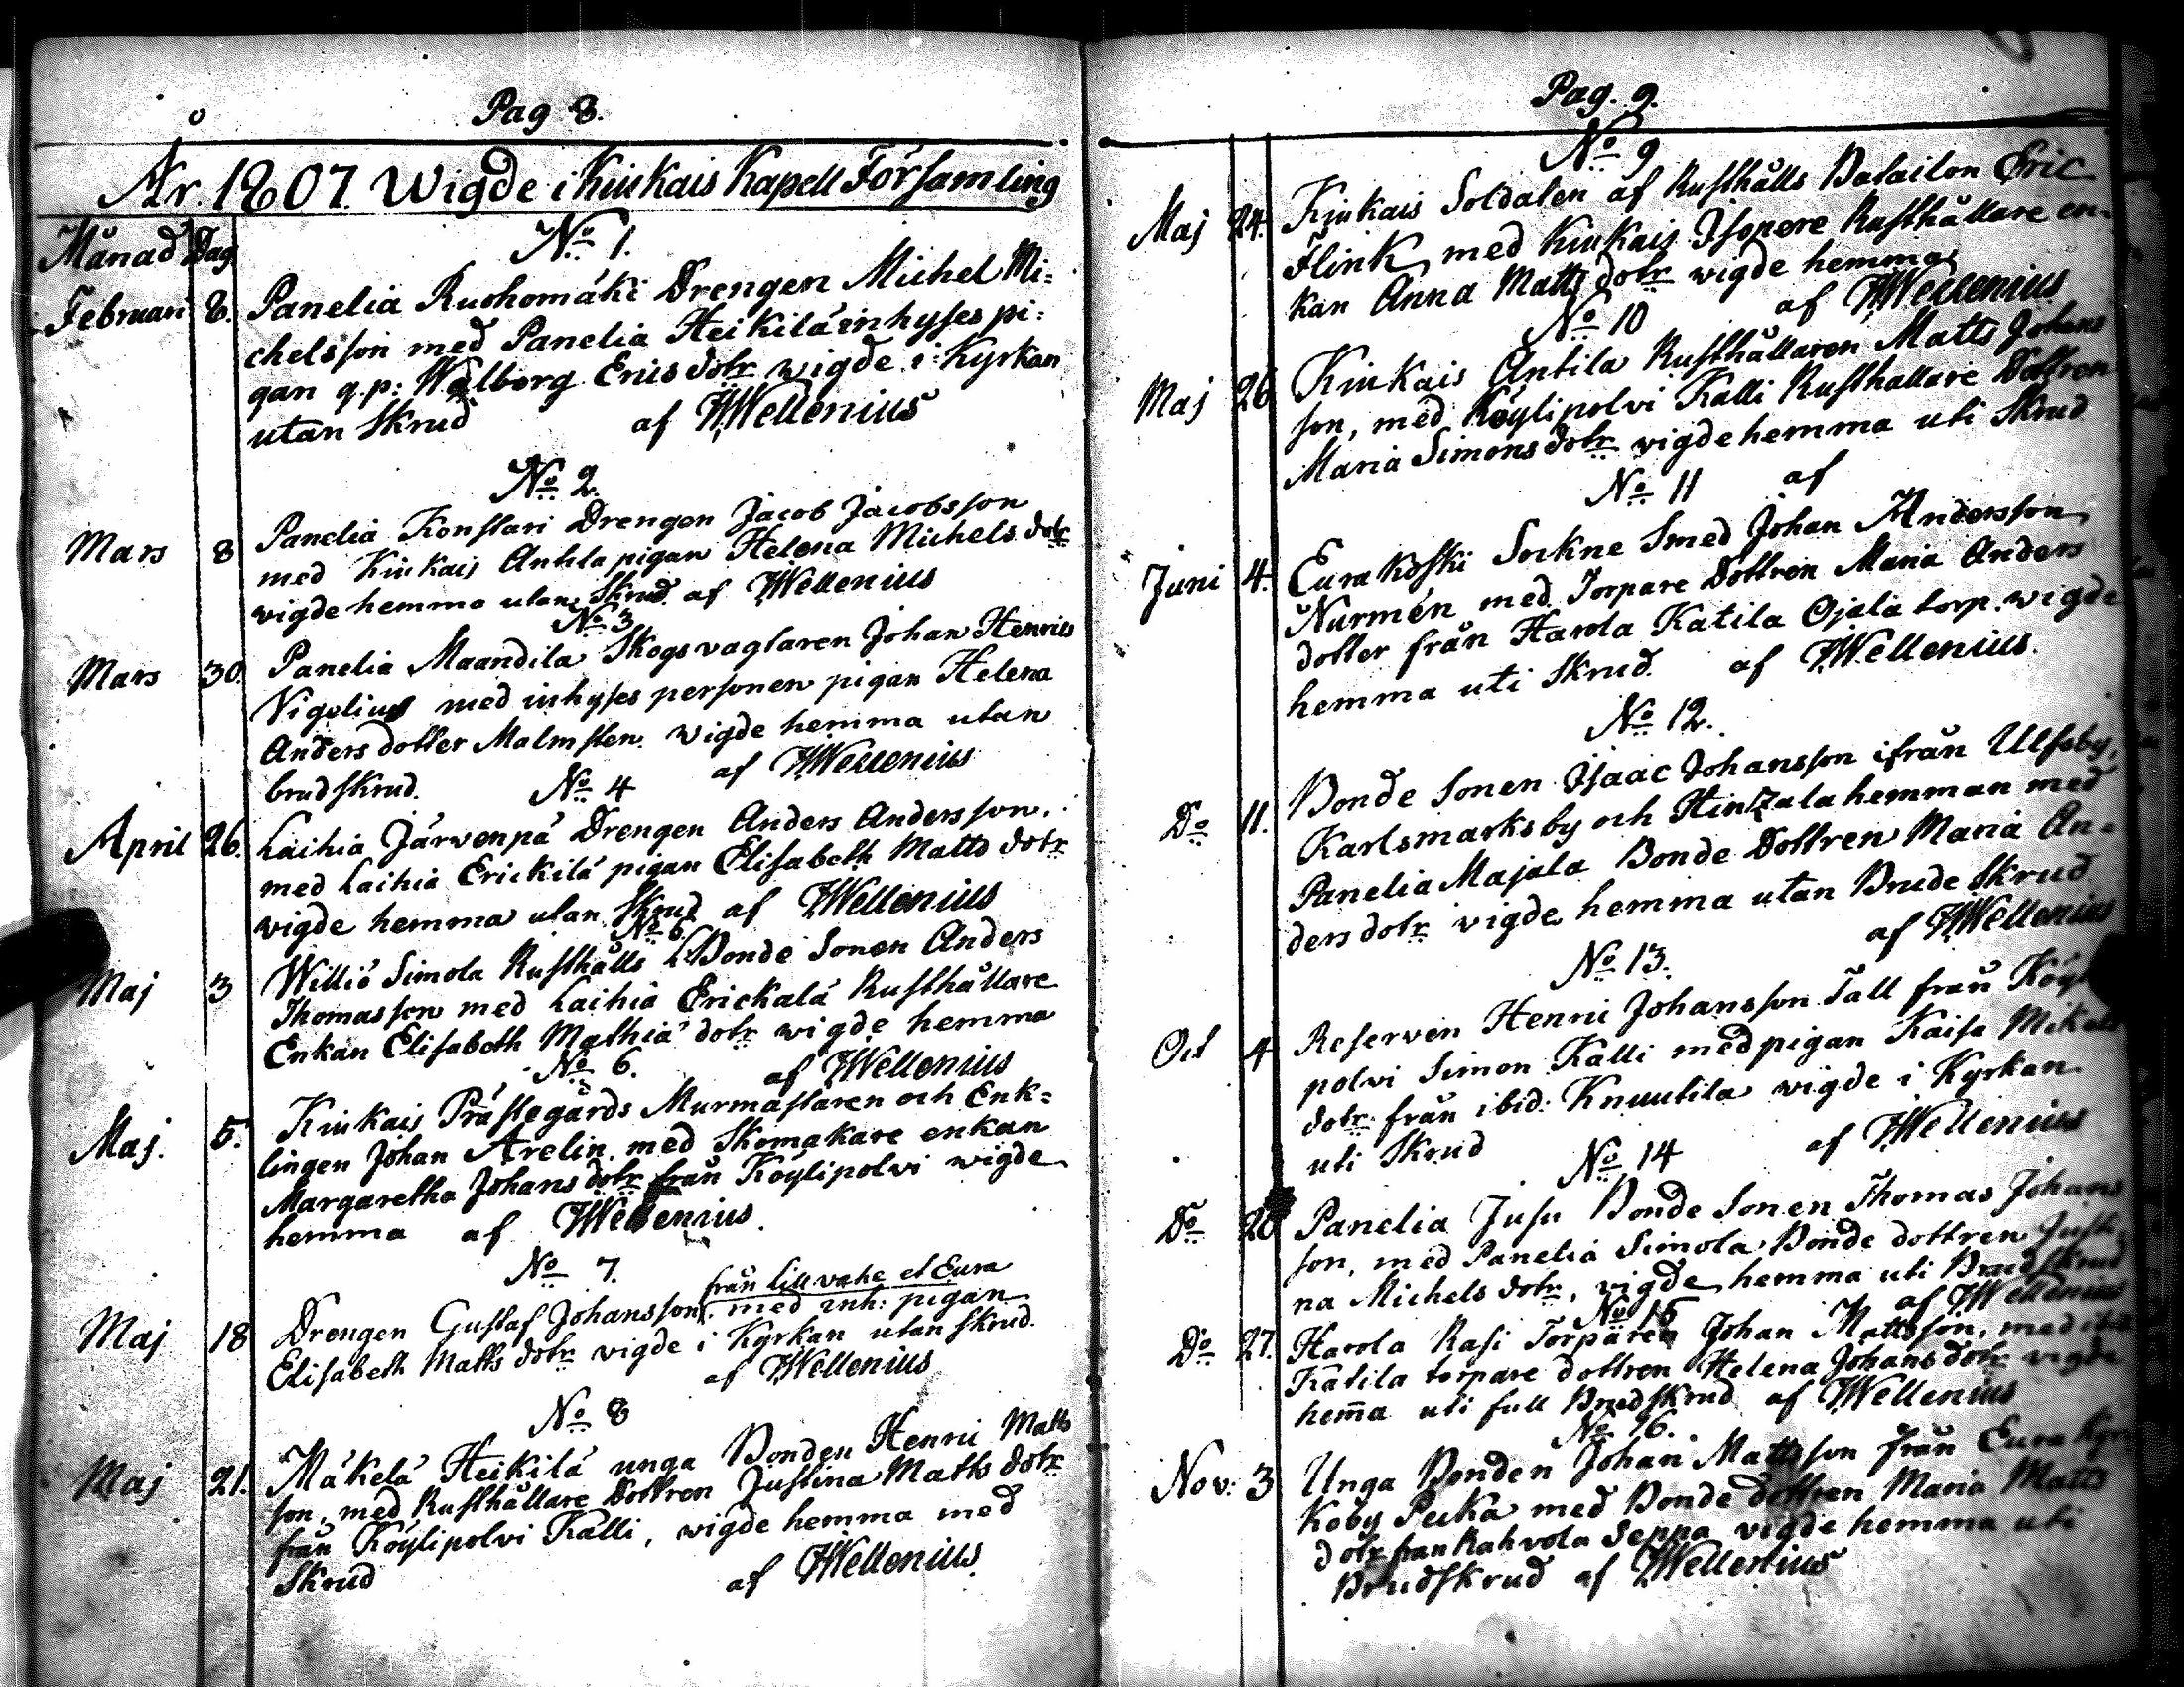 Pag. 8.
År. 1807. Wigde i Kiukais Kapell Församling
Månad Dag
No 1.
Februari 8. Panelia Ruohomäki Drengen Michel Mi-
chelsson med Panelia Heikilä inhyses pi-
gan q.p: Walborg Erics dotr wigde i Kyrkan
utan Skrud af HWellenius
No 2.
Mars 8 Panelia Konstari Drengen Jacob Jacobsson
med Kiukais Antila pigan Helena Michels dotr
vigde hemma utan Skrud. af HWellenius
No 3
Mars 30. Panelia Maandila Skogsvagtaren Johan Henrics
Vigelius med inhyses personen pigan Helena
Anders dotter Malmsten. Wigde hemma utan
brudskrud. af HWellenius
No 4
April 26. Laihia Järvenpä Drengen Anders Andersson.
med Laihia Erickilä pigan Elisabeth Matts dotr
vigde hemma utan Skrud af HWellenius
Maj 3 Williö Simola Rusthålls Bonde Sonen Anders
Thomasson med Laihia Erickalä Rusthållare
Enkan Elisabeth Mathiä dotr wigde hemma
No 6. af HWellenius
Maj. 5. Kiukais Prästegårds Murmästaren och Enk=
lingen Johan Arelin. med Skomakare enkan
Margaretha Johans dotr från Köylipolvi wigde
hemma af HWellenius.
No 7.
från Lill vahe et Eura
Maj 18 Drengen Gustaf Johansson. med inh: pigan
Elisabeth Matts dotr vigde i Kyrkan utan skrud.
af HWellenius
No 8
Maj 21. Mäkelä Heikilä unga Bonden Henric Matts
son, med Rusthållare Dottren Justina Matts dotr
från Köylipolvi Kalli, wigde hemma med
Skrud af HWellenius.
Pag. 9.
No 9
Maj 24. Kiukais Soldaten af Rusthålls Batailon Eric
Flink med Kiukais Isopere Rusthållare en-
kan Anna Matts dotr wigde hemma
No 10 af HWellenius
Maj 26 Kiukais Antila Rusthållaren Matts Johans
son, med Köylipolvi Kalli Rusthallare Dottren
Maria Simons dotr vigde hemma uti Skrud
No 11 af
Juni 4. Eura Koski Sockne Smed Johan Andersson
Nurmén med Torpare Dottren Maria Anders
dotter från Harola Katila Ojala torp. wigde
hemma uti Skrud. af HWellenius.
No 12.
Do 11. Bonde Sonen Isaac Johansson ifrån Ulfsby,
Karlsmarks by och Hintzala hemman med
Panelia Majala Bonde Dottren Maria An-
ders dotr vigde hemma utan Brude Skrud
af HWellenius
No 13.
Oct 4 Reserven Henric Johansson Tall från
polvi Simon Kalli med pigan Kaisa Mikels
dotr från ibid: Knuutila wigde i Kyrkan
uti Skrud af HWellenius
No 14
Do 20 Panelia Jusu Bonde Sonen Thomas Johans
son, med Panelia Simola Bonde dottren Justi
na Michels dotr, vigde hemma uti Brudskrud
No 15 af HWellenius
Do 27. Harola Rasi Torparen Johan Mattsson, med ibid
Katila torpare dottren Helena Johans dotr vigde
hem̅a uti full Brudskrud af HWellenius
No 16.
Nov: 3 Unga Bonden Johan Mattsson från Eura Kyr
koby Pecka med Bonde dottren Maria Matts
dotr från Kahvola Seppa vigde hemma uti
Brudskrud af HWellenius